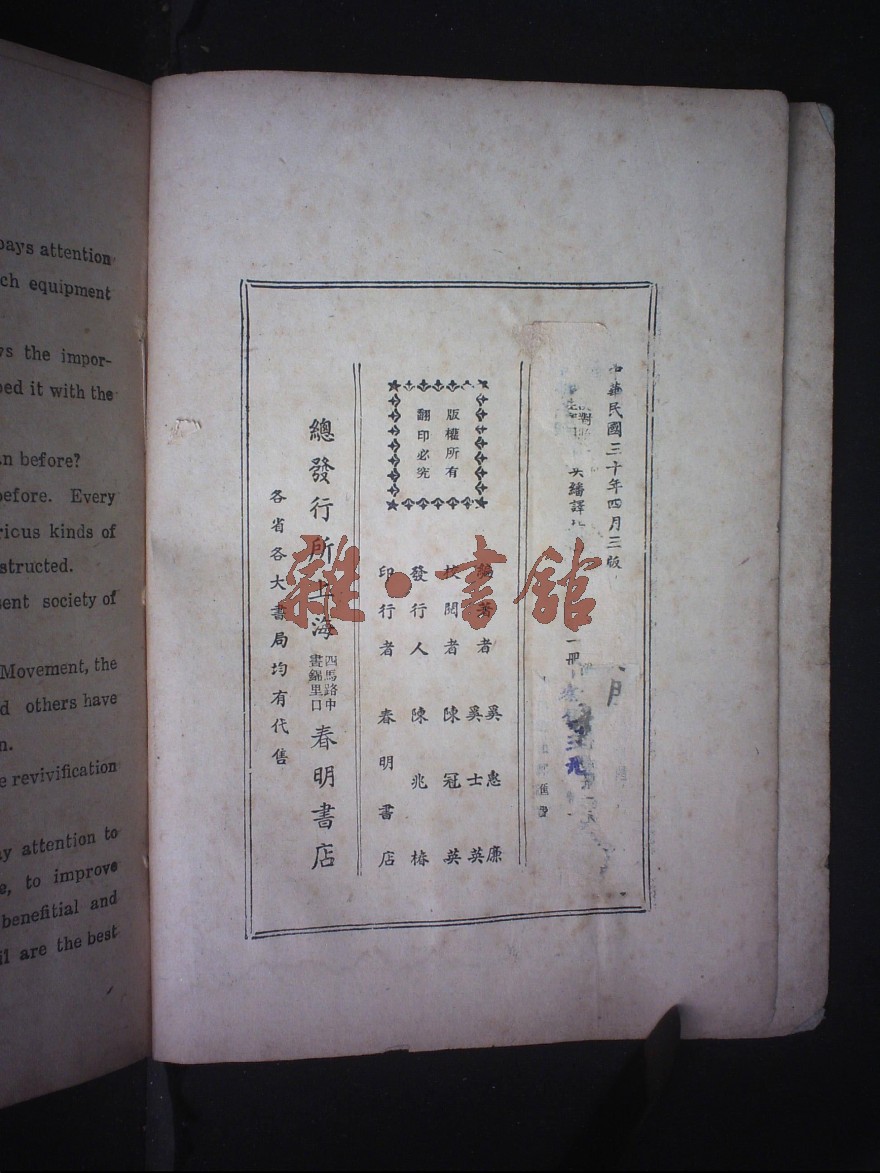 pays attention
ch equipment
s the impor-
ped it with the
n before?
before. Every
rious kinds of
structed.
sent society of
Movement, the
d others have
n.
e revivification
y attention to
e, to improve
benefitial and
il are the best
中華民國三十年四月三版
英繙譯
一冊
版權所有
翻印必究
編著者 奚惠廉 奚士英
校閱者 陳冠英
發行人 陳兆椿
印行者 春明書店
總發行所上海 四馬路中畫錦里口 春明書店
各省各大書局均有代售
雜·書館